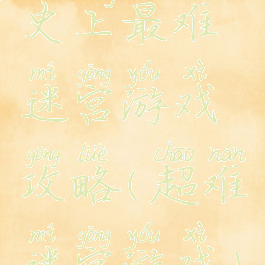 史上最难
mí gōng yóu xì
迷宫游戏
gōng lüè chāo nán
攻略(超难
mí gōng yóu xì
迷宫游戏)